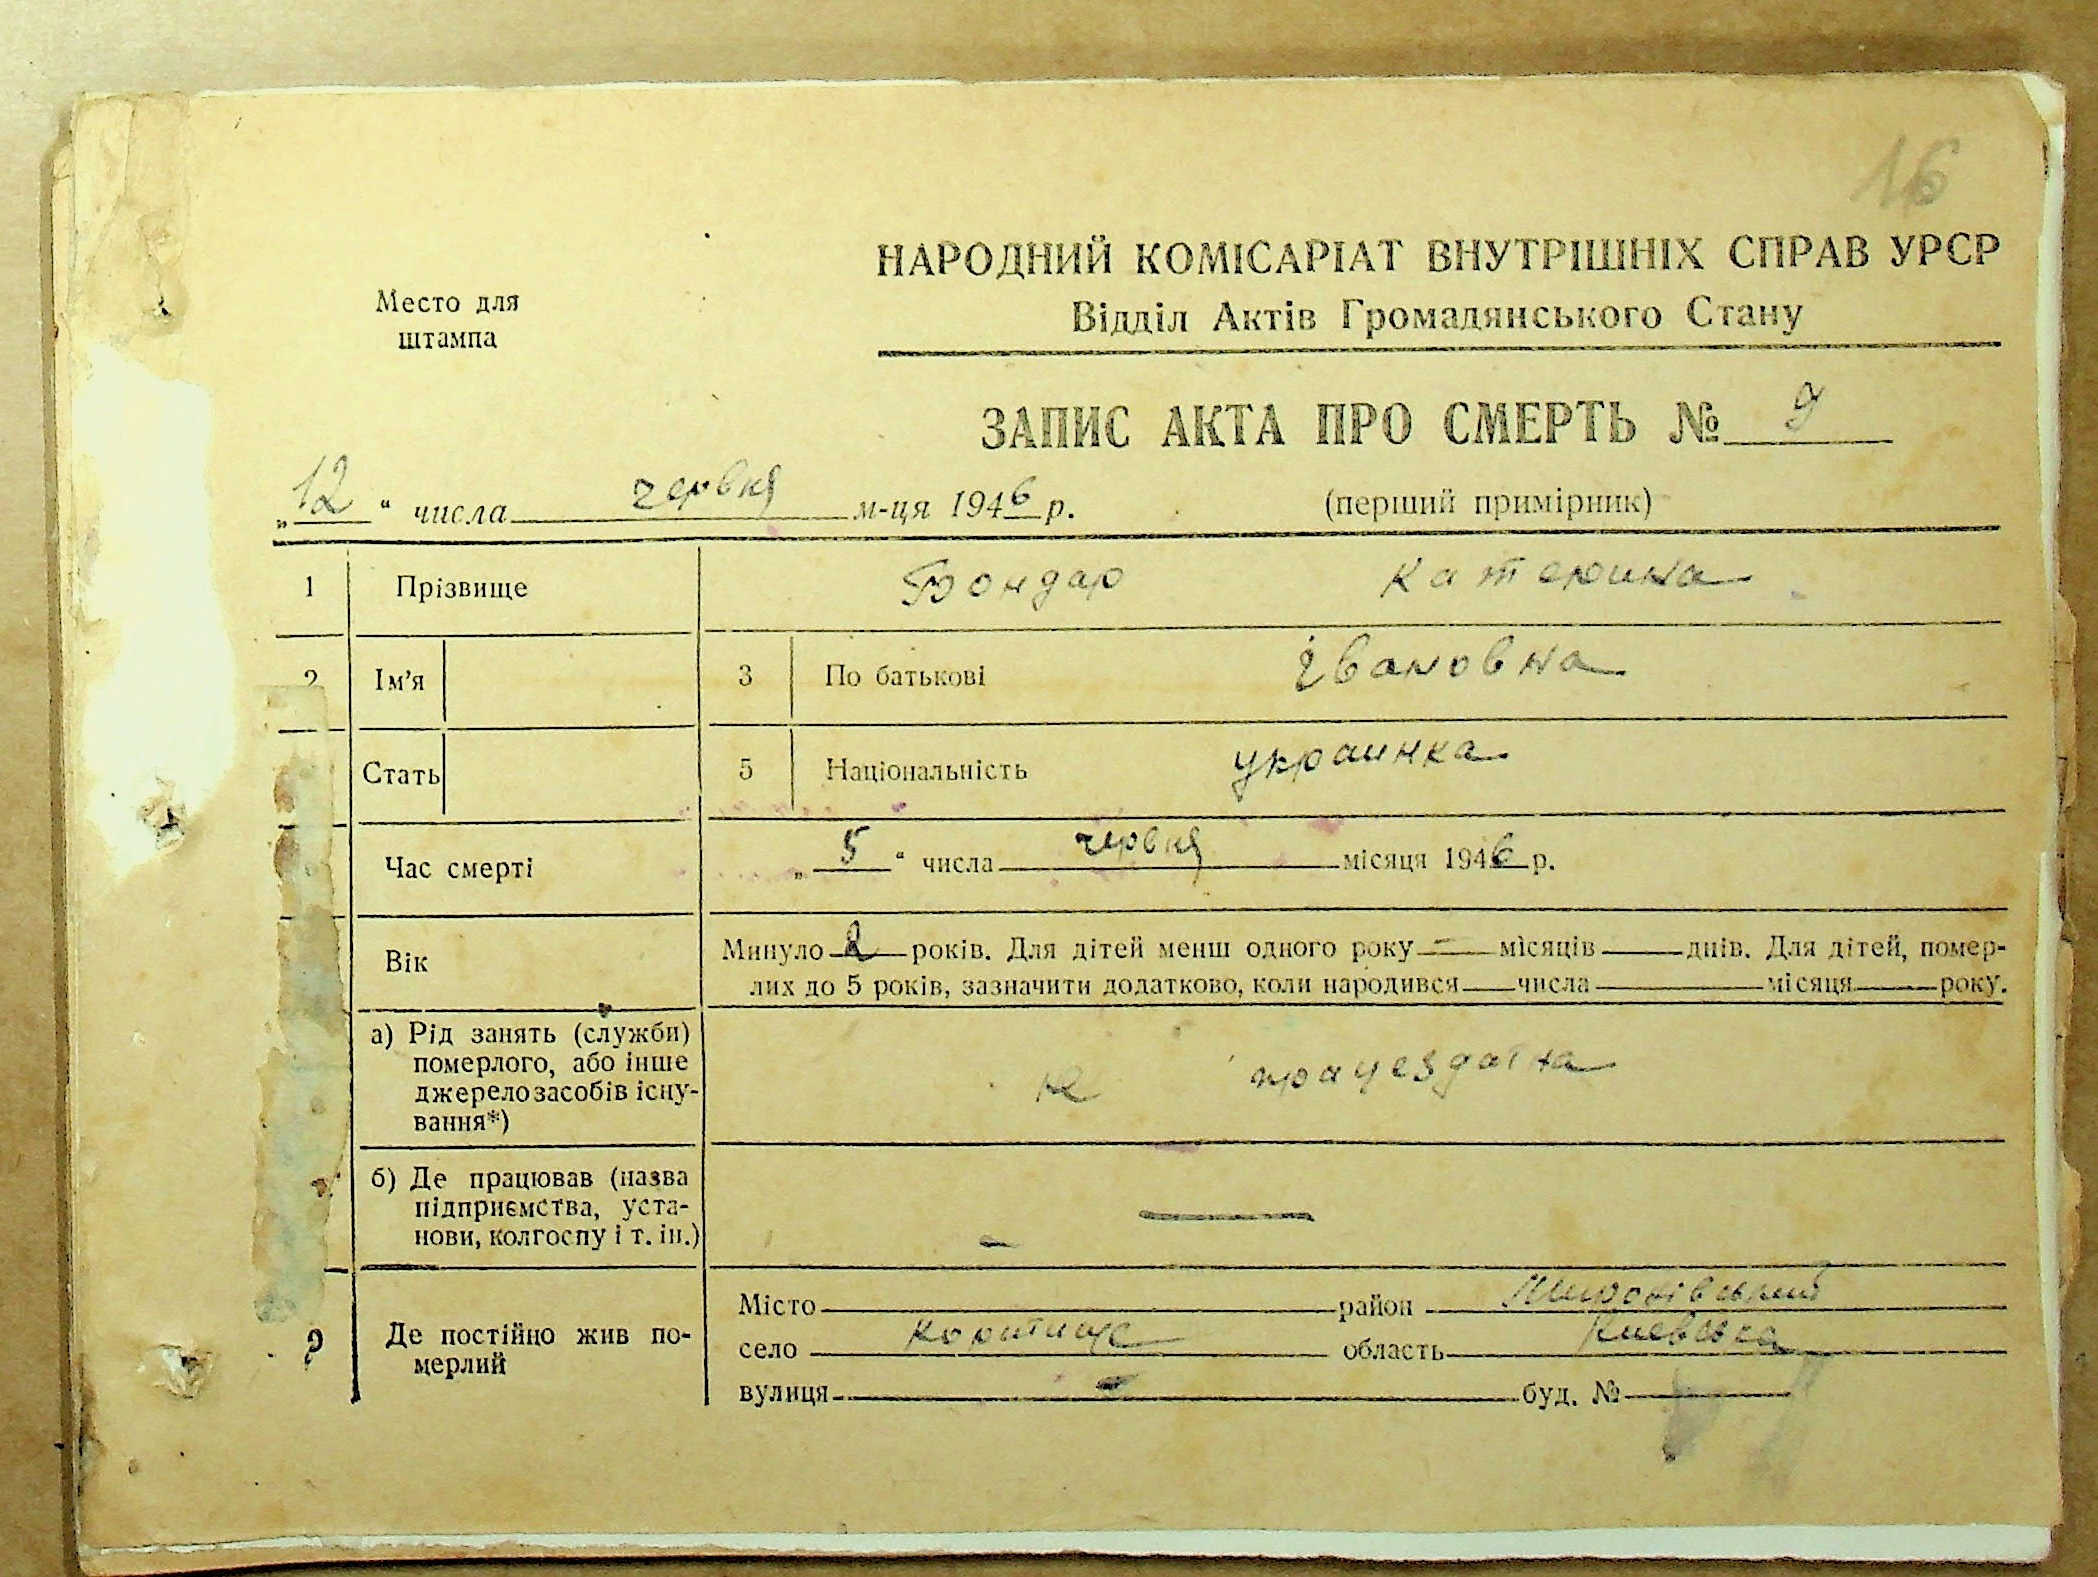 16
НАРОДНИЙ КОМІСАРІАТ ВНУТРІШНІХ СПРАВ УРСР
Відділ Актів Громадянського Стану
Место для
штампа
ЗАПИС АКТА ПРО СМЕРТЬ № 9
„12“ числа червня м-ця 1946 р.
(перший примірник)
1 Прізвище Бондар Катерина
2 Ім'я 3 По батькові Івановна
Стать 5 Національність украинка
Час смерті „5“ числа червня місяця 1946 р.
Вік Минуло 2 років. Для дітей менш одного року — місяців — днів. Для дітей, помер-
лих до 5 років, зазначити додатково, коли народився — числа — місяця — року.
а) Рід занять (служби)
померлого, або інше
джерело засобів існу-
вання*)
не працездатна
б) Де працював (назва
підприємства, уста-
нови, колгоспу і т. ін.)
—
Де постійно жив по-
мерлий
Місто район Миронівський
село Коритище область Киевська
вулиця — буд. №